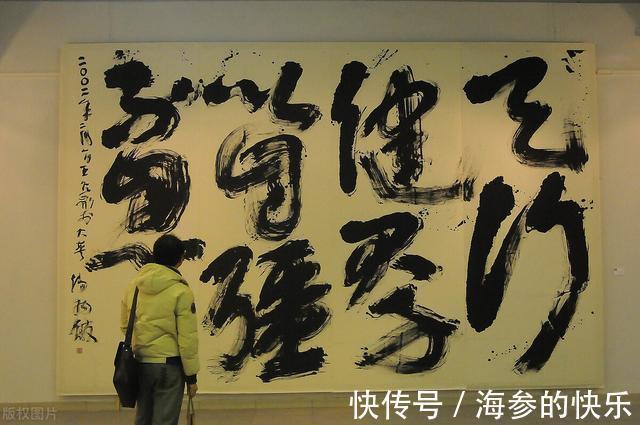 天行
健君子
以自强
不息
二〇〇二年
版权图片
快传号 / 海参的快乐